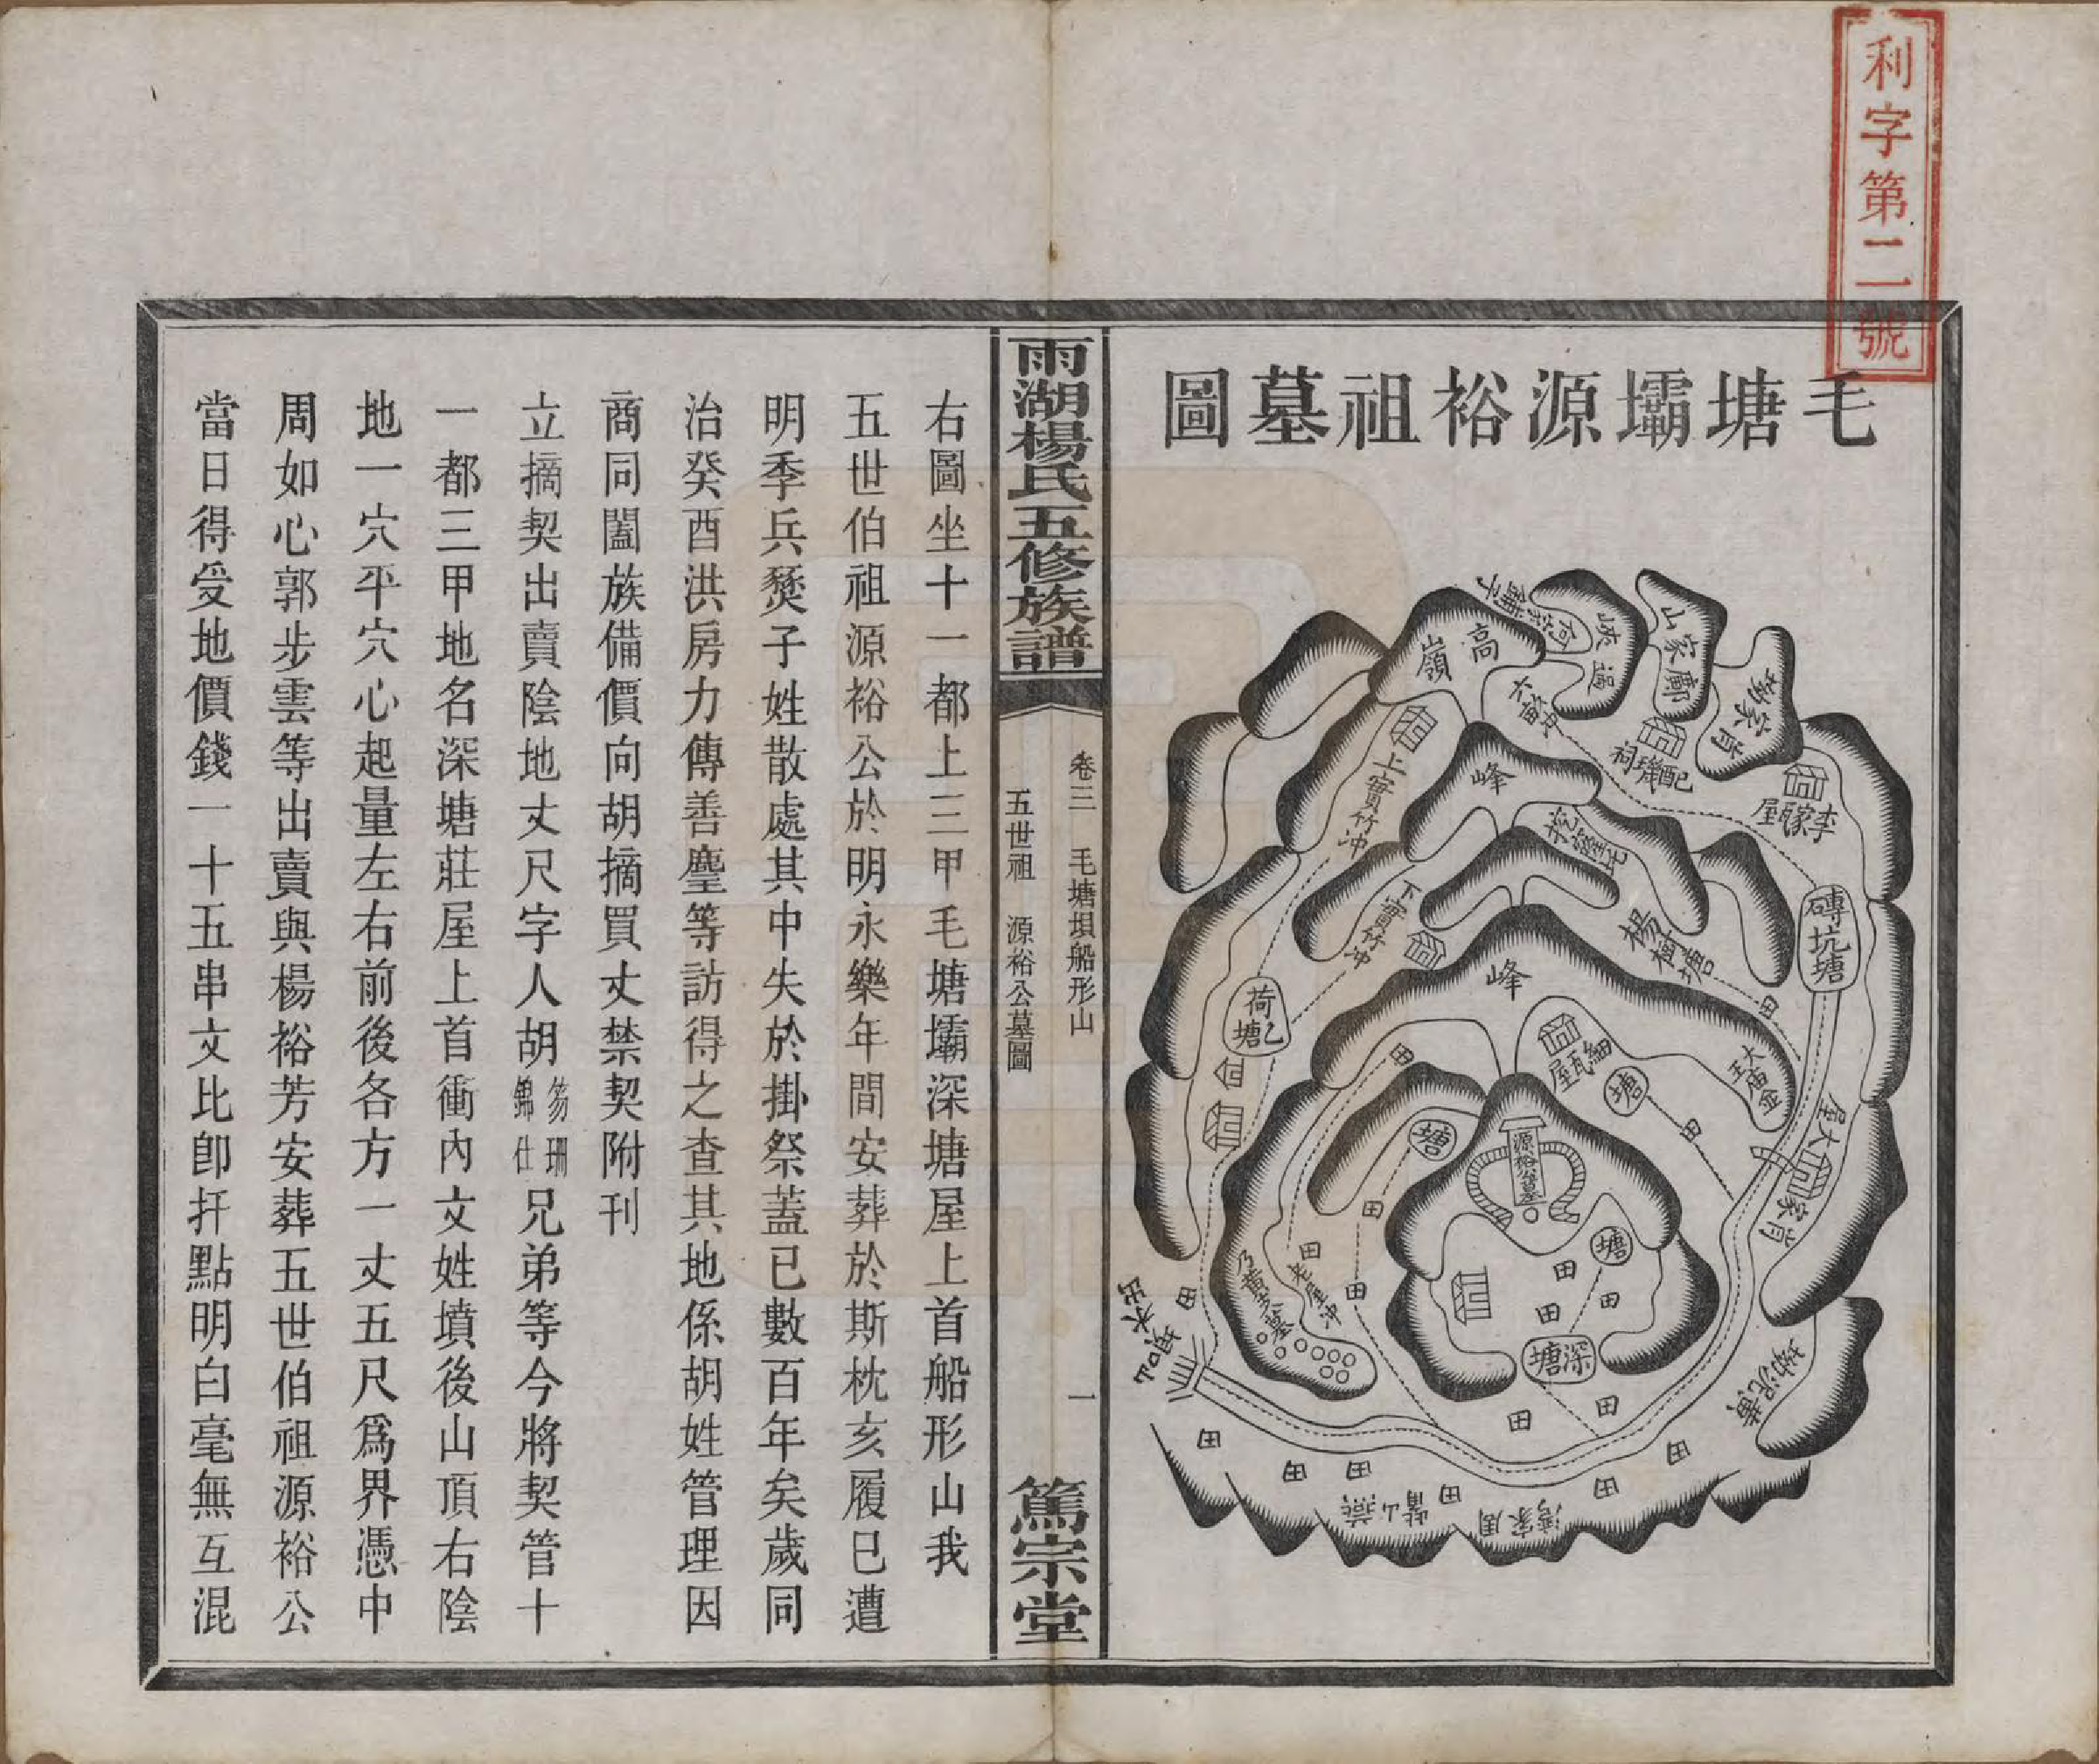 利字第二號
毛塘壩源裕祖墓圖
高嶺
峽過
鄺家山
六畝冲
配璣祠
李家瓦屋
上實竹冲
峰
下實竹冲
磚坑塘
楊樹塘
峰
荷心塘
田
細瓦屋
塘
田
田
塘
源裕公墓
田
塘
肖家大屋
田
老屋冲
田
田
田
田
田
乃黃夫墓
深塘
出水洞口
黃泥坳
田
田
田
田
田
田
田
田
燕山嘴
周家灣
雨湖楊氏五修族譜
卷三 毛塘垻船形山
五世祖 源裕公墓圖
一
篤宗堂
右圖坐十一都上三甲毛塘壩深塘屋上首船形山我
五世伯祖源裕公於明永樂年間安葬於斯枕亥履巳遭
明季兵燹子姓散處其中失於掛祭蓋已數百年矣歲同
治癸酉洪房力傳善麈等訪得之查其地係胡姓管理因
商同闔族備價向胡摘買丈禁契附刊
立摘契出賣陰地丈尺字人胡笏珊錦仕兄弟等今將契管十
一都三甲地名深塘莊屋上首衝內文姓墳後山頂右陰
地一穴平穴心起量左右前後各方一丈五尺爲界憑中
周如心郭步雲等出賣與楊裕芳安葬五世伯祖源裕公
當日得受地價錢一十五串文比卽扦點明白毫無互混